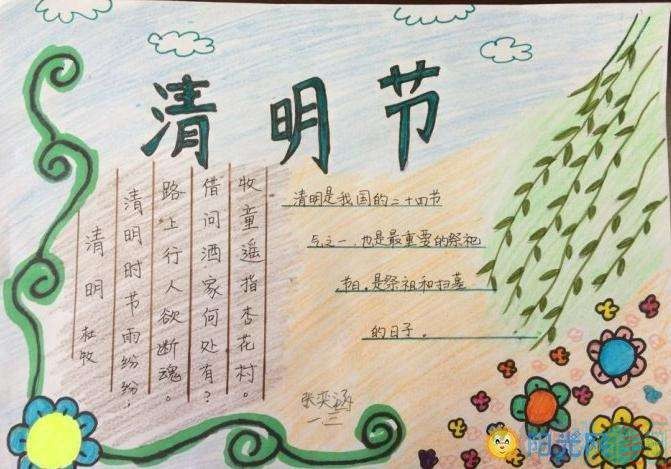 清明节
清明
杜牧
清明时节雨纷纷，
路上行人欲断魂。
借问酒家何处有？
牧童遥指杏花村。
清明是我国的二十四节
之一.也是最重要的祭祀
日.是祭祖和扫墓
的日子.
张奕涵
阳光